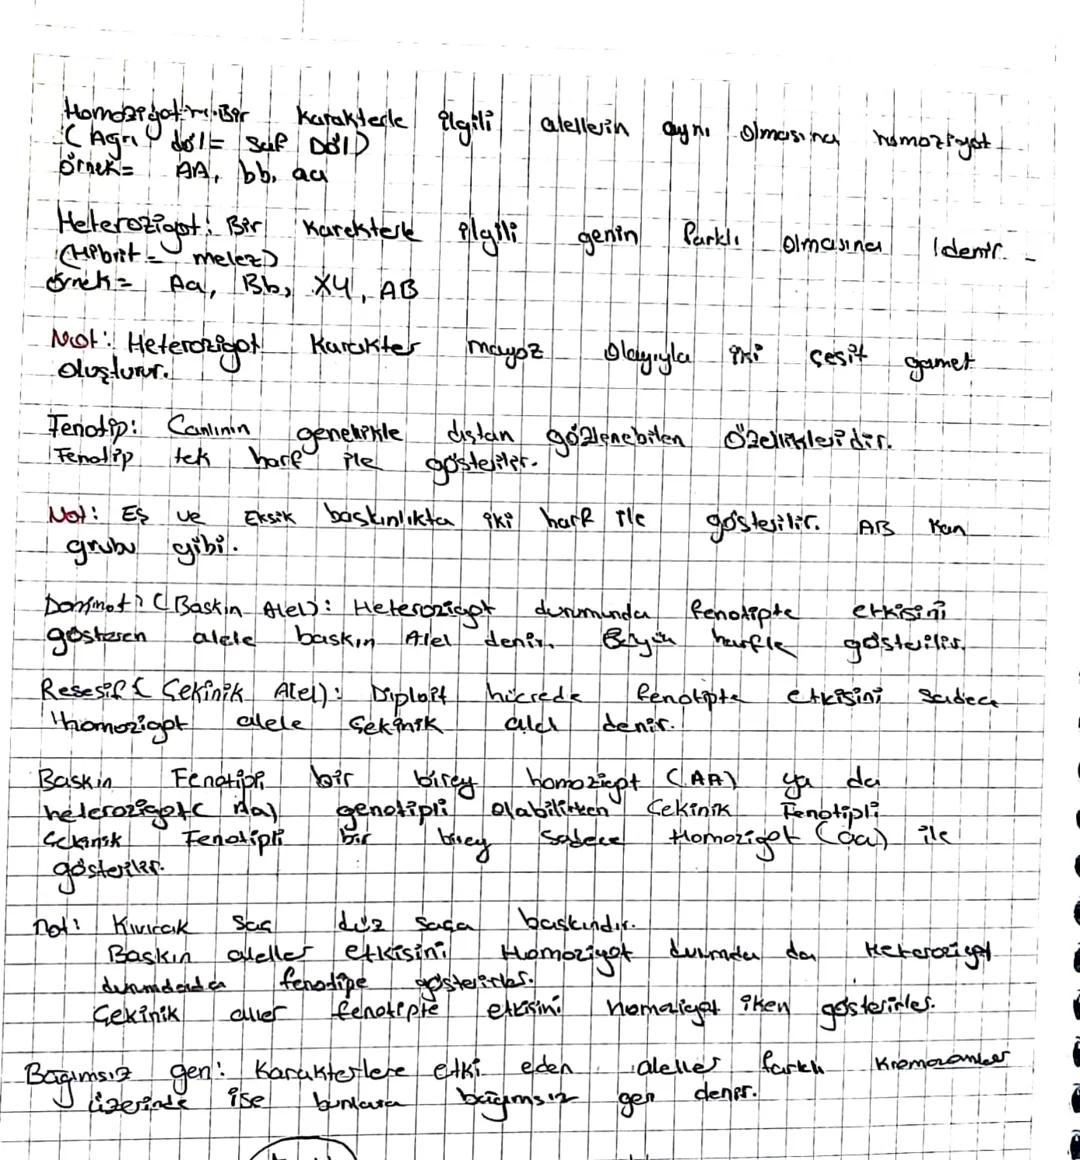 Homozigot: Bir Karakterle ilgili alellerin aynı olmasına homozigot
(Arı döl = Saf Döl)
Örnek = AA, bb, aa
Heterozigot: Bir Karekterle ilgili genin farklı olmasına denir.
(Hibrit = melez)
Örnek = Aa, Bb, XY, AB
Not: Heterozigot Karakter mayoz olayıyla iki çeşit gamet
oluşturur.
Fenotip: Canlının genellikle dıştan gözlenebilen özellikleridir.
Fenotip tek harf ile gösterilir.
Not: Eş ve Eksik baskınlıkta iki harf ile gösterilir. AB Kan
grubu gibi.
Dominot (Baskın Alel): Heterozigot durumunda fenotipte etkisini
gösteren alele baskın Alel denir. Büyük harfle gösterilir.
Resesif (Çekinik Alel): Diploit hücrede fenotipte etkisini sadece
homozigot alele çekinik alel denir.
Baskın Fenotipi bir birey homozigot (AA) ya da
heterozigot (Aa) genotipli olabilirken Çekinik Fenotipli
Çekinik Fenotipli bir birey sadece Homozigot (aa) ile
gösterilir.
not: Kıvırcık saç düz saça baskındır.
Baskın aleller etkisini Homozigot durumda da Heterozigot
durumdada fenotipe gösterirler.
Çekinik aller fenotipte etkisini homozigot iken gösterirler.
Bağımsız gen: Karakterlere etki eden aleller farklı Kromozomlar
üzerinde ise bunlara bağımsız gen denir.